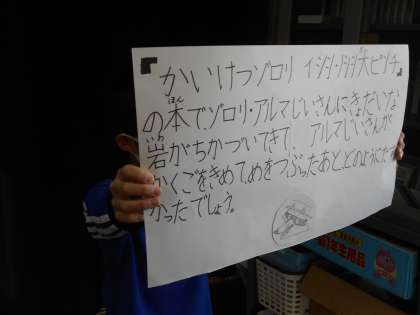 「かいけつゾロリ イシシ・ノシシ大ピンチ」
の本で、ゾロリ・アルマじいさんにきょだいな
ほん
岩がちかづいてきて、アルマじいさんが
いわ
かくごをきめて、めをつぶったあと、どのようにたすか
かったでしょう。
1年生用品